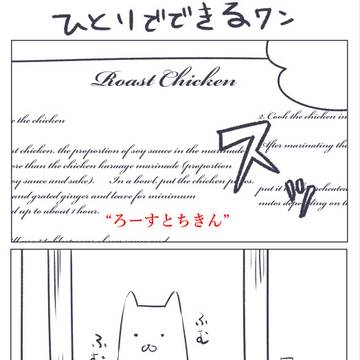 ひとりでできるワン
Roast Chicken
e the chicken
2. Cook the chicken in
st chicken, the proportion of soy sauce in the marinade
After marinating the
ere than the chicken karaage marinade (proportion
oy sauce and sake). In a bowl, put the chicken pieces
and grated ginger and leave for minimum
put it
cheated
d up to about 1 hour.
nutes depending on
スッ
“ろーすとちきん”
ふむ
ふむ